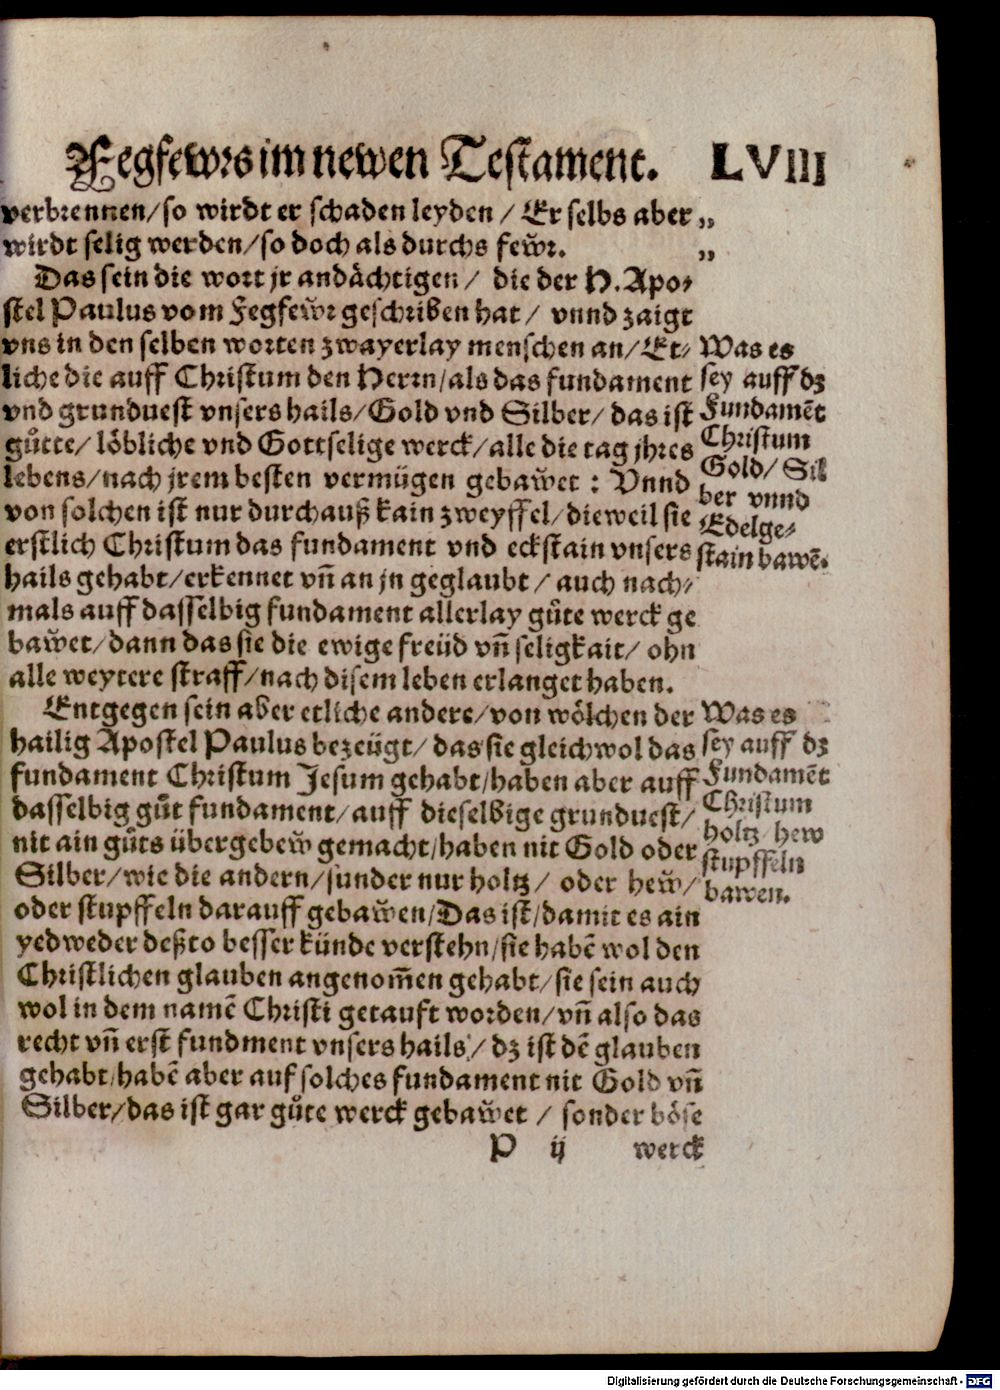 Fegfewrs im newen Testament. LVIII
verbrennen/so wirdt er schaden leyden / Er selbs aber „
wirdt selig werden/so doch als durchs feẘr. „
Das sein die wort jr andächtigen / die der H. Apo-
stel Paulus vom Fegfeẘr geschriben hat / vnnd zaigt
vns in den selben worten zwayerlay menschen an/Et-
liche die auff Christum den Herrn/als das fundament
vnd grunduest vnsers hails/Gold vnd Silber/das ist
gůtte/löbliche vnd Gottselige werck/alle die tag jhres
lebens/nach jrem besten vermügen gebaẘet : Vnnd
von solchen ist nur durchauß kain zweyffel/dieweil sie
erstlich Christum das fundament vnd eckstain vnsers
hails gehabt/erkennet vñ an jn geglaubt / auch nach-
mals auff dasselbig fundament allerlay gůte werck ge
baẘet/dann das sie die ewige freüd vñ seligkait/ ohn
alle weytere straff/nach disem leben erlanget haben.
Was es
sey auff dz
Fundamẽt
Christum
Gold/ Sil
ber vnnd
Edelge-
stain bawẽ.
Entgegen sein aber etliche andere/von wölchen der
hailig Apostel Paulus bezeügt/das sie gleichwol das
fundament Christum Jesum gehabt/haben aber auff
dasselbig gůt fundament/auff dieselbige grunduest/
nit ain gůts übergebeẘ gemacht/haben nit Gold oder
Silber/wie die andern/sunder nur holtz / oder heẘ/
oder stupffeln darauff gebaẘen/Das ist/damit es ain
yedweder deßto besser künde verstehn/sie habẽ wol den
Christlichen glauben angenom̃en gehabt/sie sein auch
wol in dem namẽ Christi getauft worden/vñ also das
recht vñ erst fundment vnsers hails/dz ist dẽ glauben
gehabt/habẽ aber auf solches fundament nit Gold vñ
Silber/das ist gar gůte werck gebaẘet / sonder böse
Was es
sey auff dz
Fundamẽt
Christum
holtz/hew
stupffeln
bawen.
P ij werck
Digitalisierung gefördert durch die Deutsche Forschungsgemeinschaft - DFG